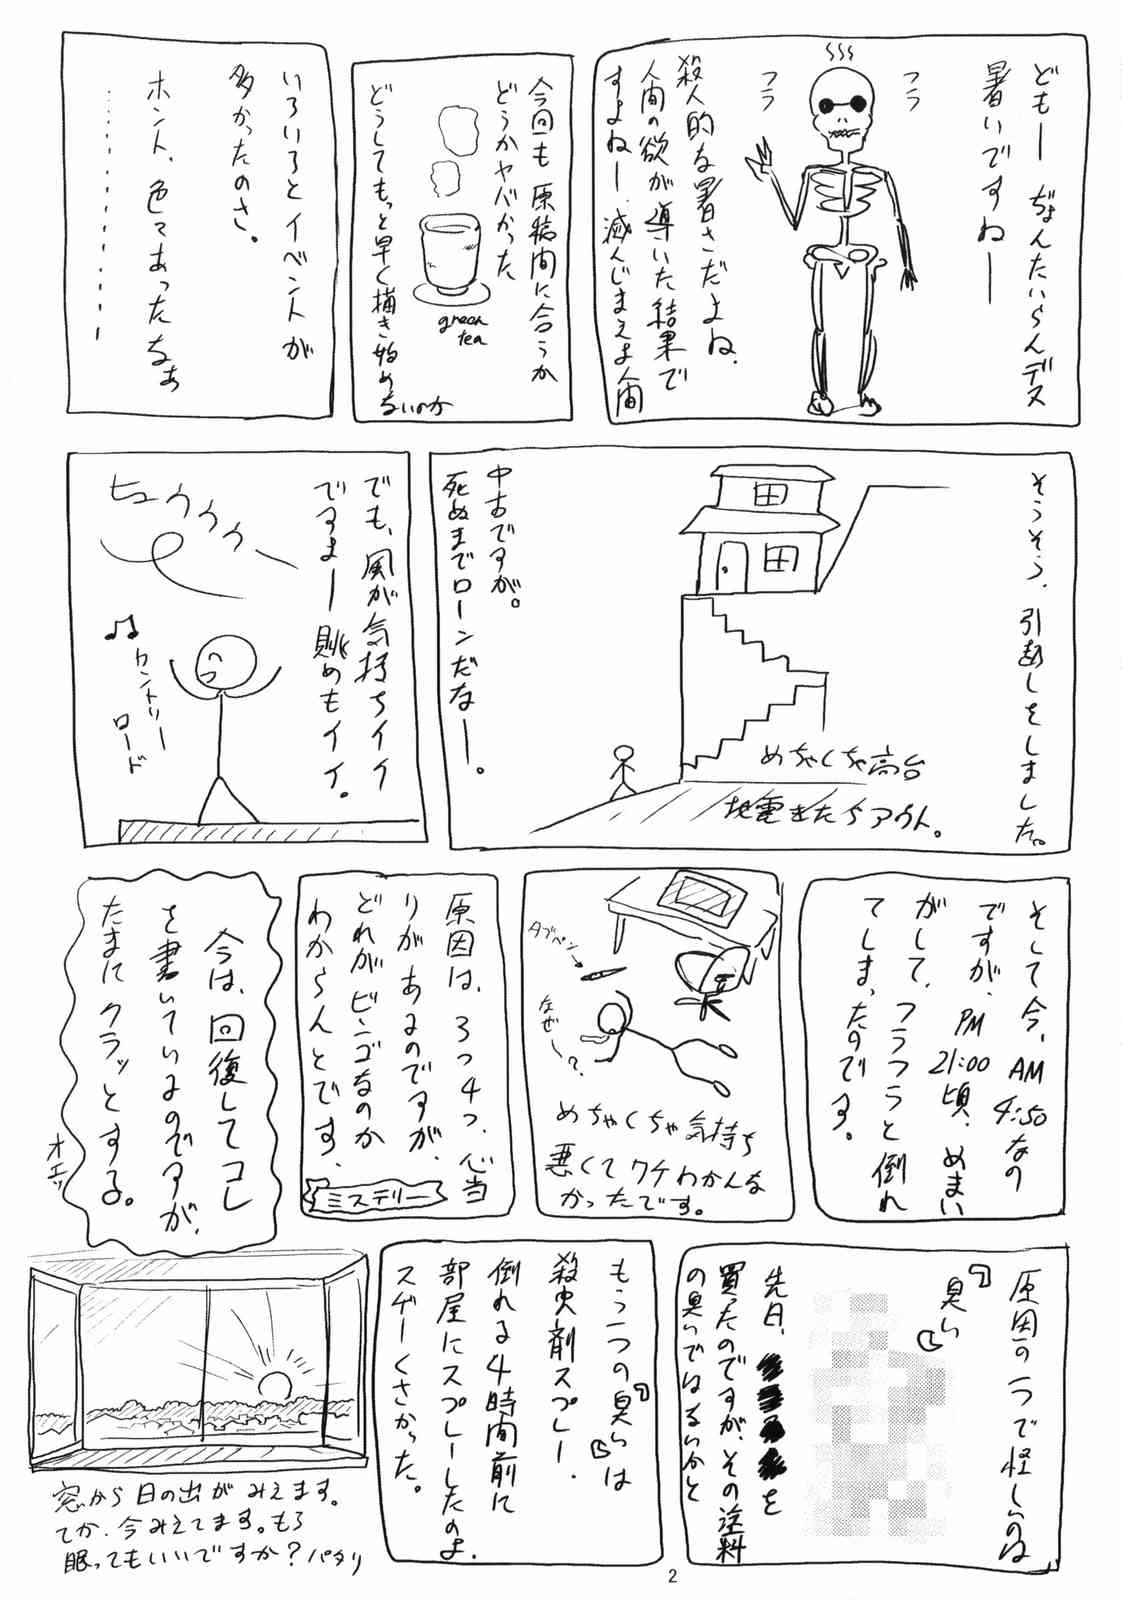 どもー ぢょんたいらんデス
暑いですねー
フラ
フラ
殺人的な暑さだよね、
人間の欲が導いた結果で
すよねー、滅んじまえよ人間
今回も原稿間に合うか
どうかヤバかった
green
tea
どうしてもっと早く描き始め
ないのか
いろいろとイベントが
多かったのさ。
ホント、色々あったなぁ
そうそう、引越しをしました。
めちゃくちゃ高台
地震きたらアウト。
中古ですが。
死ぬまでローンだなー。
でも、風が気持ちイイ
ですよー 眺めもイイ。
ヒュウウウー
♪♫カントリー
ロード
そして今、AM
4:50なの
ですが、PM
21:00
頃、めまい
がして、フラフラと倒れ
てしまったのです。
タブペン
なぜ〜?
めちゃくちゃ気持ち
悪くてワケわかんな
かったです。
原因は、3つ4つ、心当
りがあるのですが、
どれがビンゴなのか
わからんとです、
ミステリー
今は、回復してコレ
を書いているのですが、
たまにクラッとする。
オエッ
原因の一つで怪しいのは
『臭い』
先日、
を
買ったのですが、その塗料
の臭いではないかと
もう一つの『臭い』は
殺虫剤スプレー、
倒れる4時間前に
部屋にスプレーしたのよ、
スゲーくさかった。
窓から日の出がみえます。
てか、今みえてます。もう
眠ってもいいですか?パタリ
2